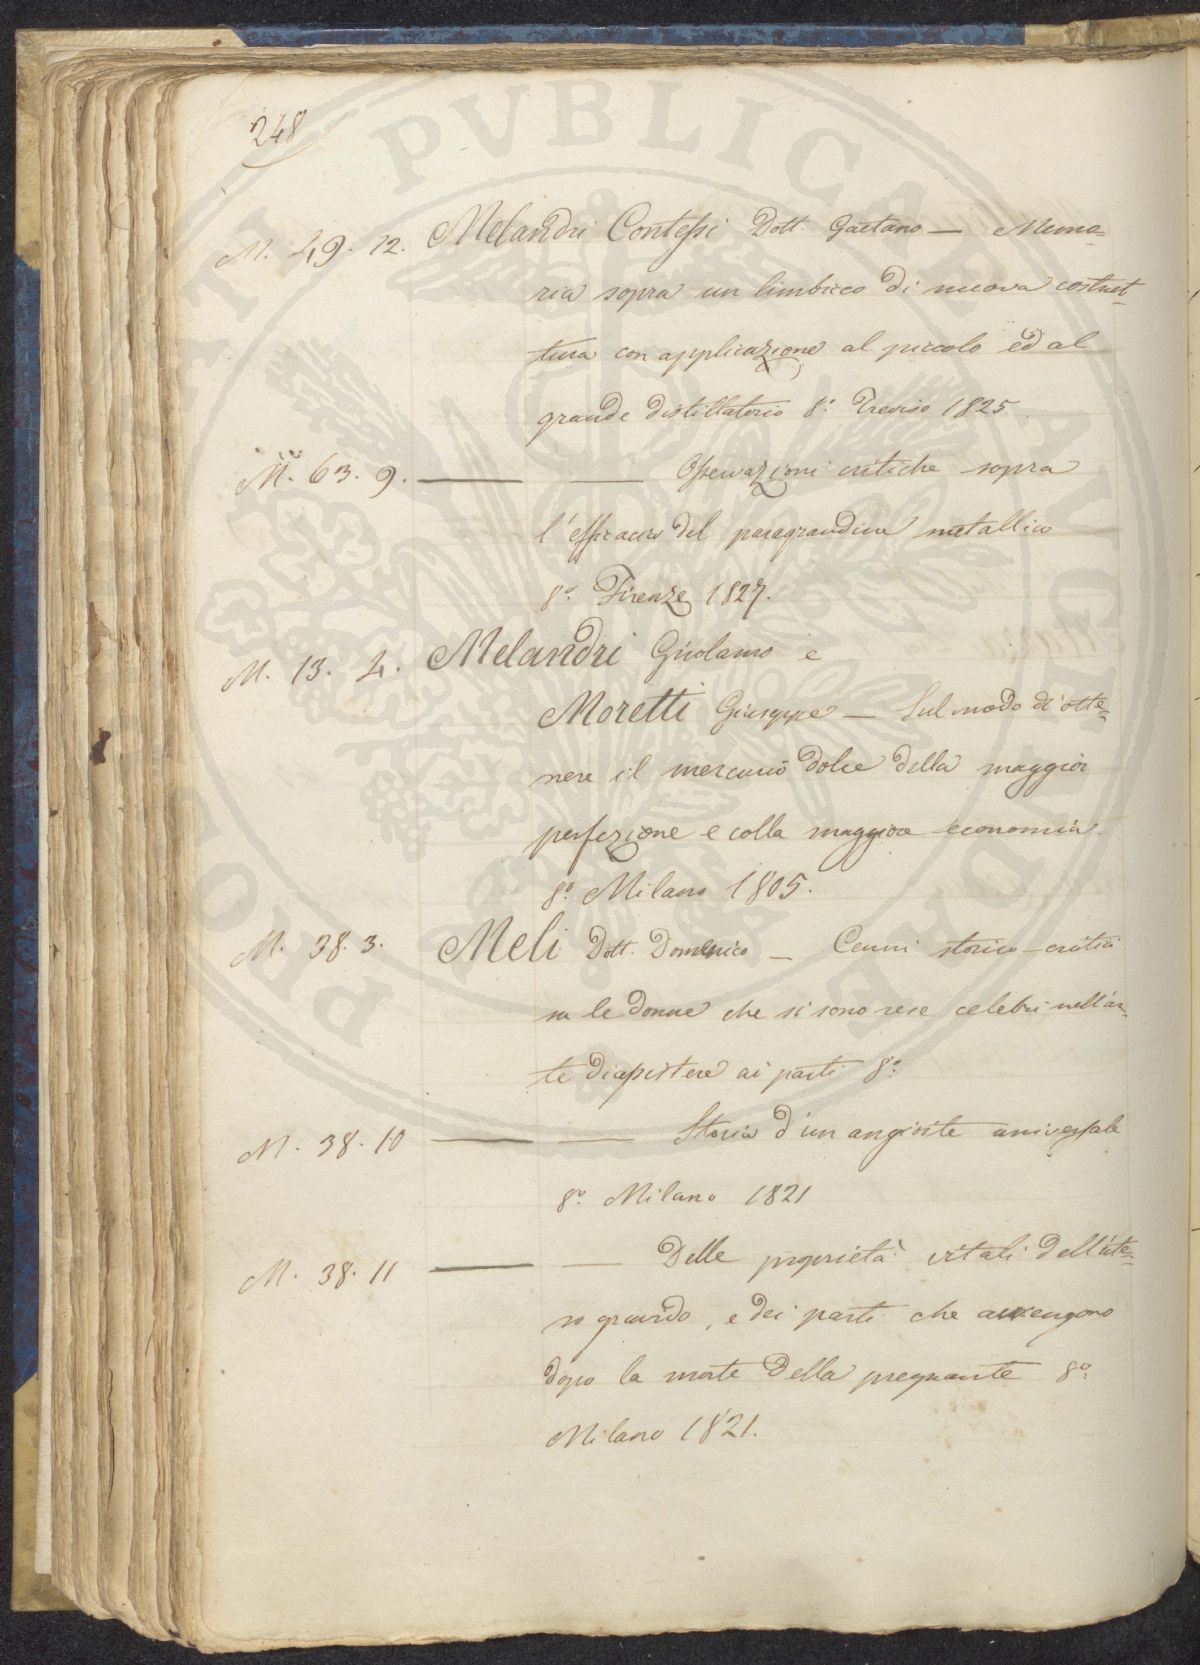 248
M. 49. 12. Melandri Contessi Dott. Gaetano — Memo=
ria sopra un limbicco di nuova costrut=
tura con applicazione al piccolo ed al
grande distillatorio 8.º Treviso 1825
M. 63. 9. — — Osservazioni critiche sopra
l'efficacia del paragrandine metallico
8.º Firenze 1827.
M. 13. 4. Melandri Girolamo e
Moretti Giuseppe — Sul modo di otte=
nere il mercurio dolce della maggior
perfezione e colla maggiore economia.
8.º Milano 1805.
M. 38. 3. Meli Dott. Domenico — Cenni storico-critici
su le donne che si sono rese celebri nell'ar=
te d'assistere ai parti 8.º
M. 38. 10 — — Storia d'un angioite universale
8.º Milano 1821
M. 38. 11 — — Delle proprietà vitali dell'ute=
ro gravido, e dei parti che avvengono
dopo la morte della pregnante 8.º
Milano 1821.